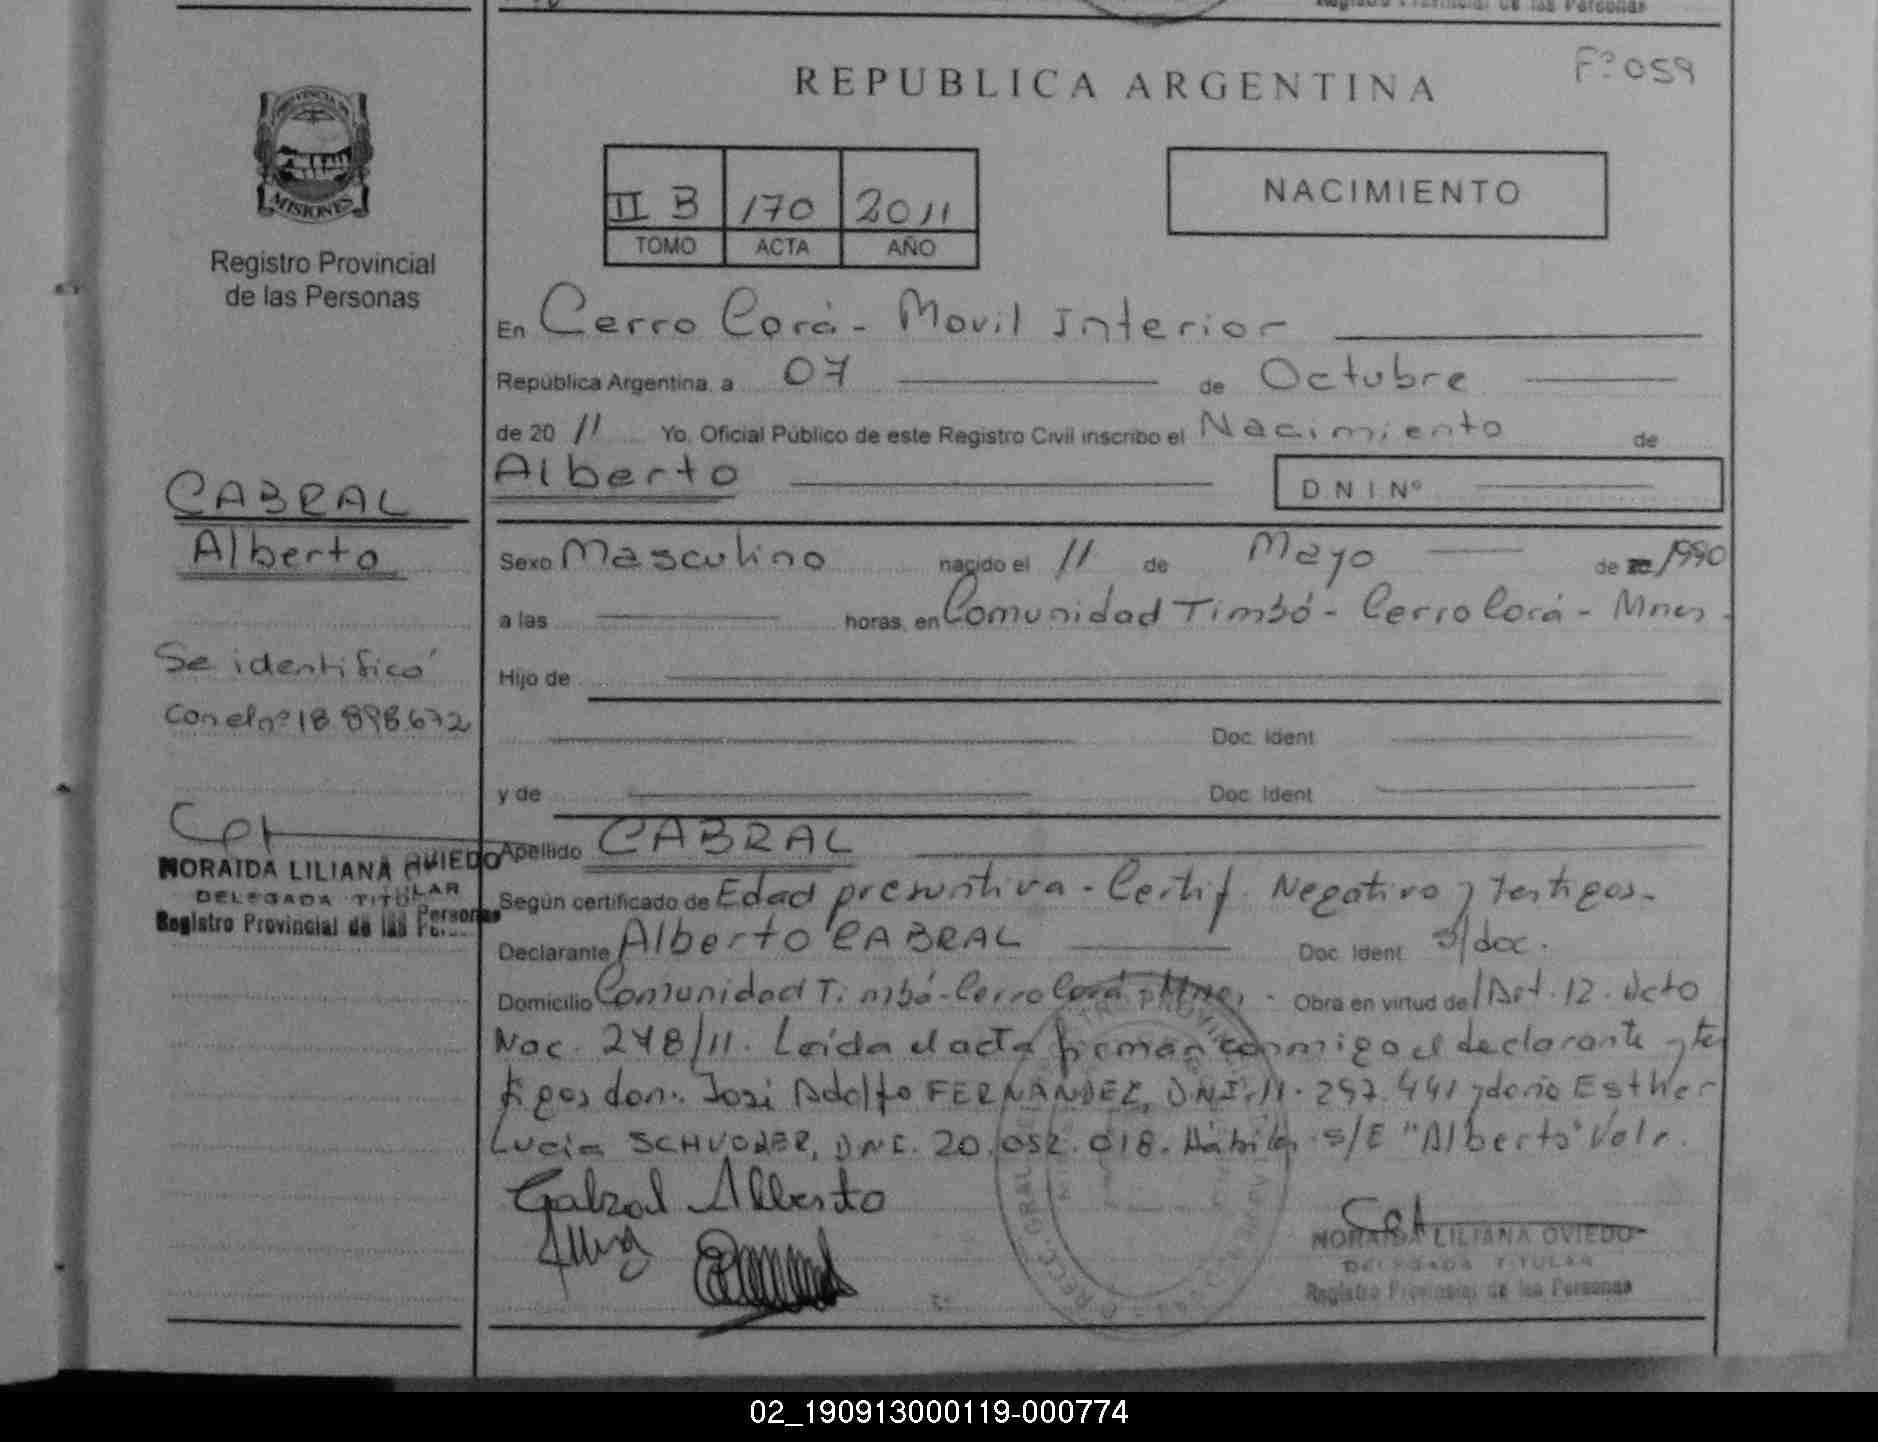 Registro Provincial de las Personas
REPUBLICA ARGENTINA
Fº 059
PROVINCIA DE
MISIONES
Registro Provincial
de las Personas
II B 170 2011
TOMO ACTA AÑO
NACIMIENTO
En Cerro Corá - Movil Interior
República Argentina, a 07 de Octubre
de 2011 Yo, Oficial Público de este Registro Civil inscribo el Nacimiento de
Alberto
D N I Nº
CABRAL
Alberto
Sexo Masculino nacido el 11 de Mayo de 1990
a las horas, en Comunidad Timbó - Cerro Corá - Mnes -
Se identificó
con el nº 18.898.672
Hijo de
Doc. Ident
y de Doc. Ident
Apellido CABRAL
NORAIDA LILIANA OVIEDO
DELEGADA TITULAR
Registro Provincial de las Personas
Según certificado de Edad presuntiva - Certif. Negativo y testigos -
Declarante Alberto CABRAL Doc. Ident s/doc.
Domicilio Comunidad Timbó - Cerro Corá - Mnes - Obra en virtud del Art. 12. Dcto
Nac. 278/11. Leída el acta firman conmigo el declarante y tes
tigos don: José Adolfo FERNANDEZ, DNI. 11.297.441 y doña Esther
Lucia DNI. 20.052.018. Hábiles s/E "Alberto" Vale.
Cabral Alberto
NORAIDA LILIANA OVIEDO
DELEGADA TITULAR
Registro Provincial de las Personas
02_190913000119-000774